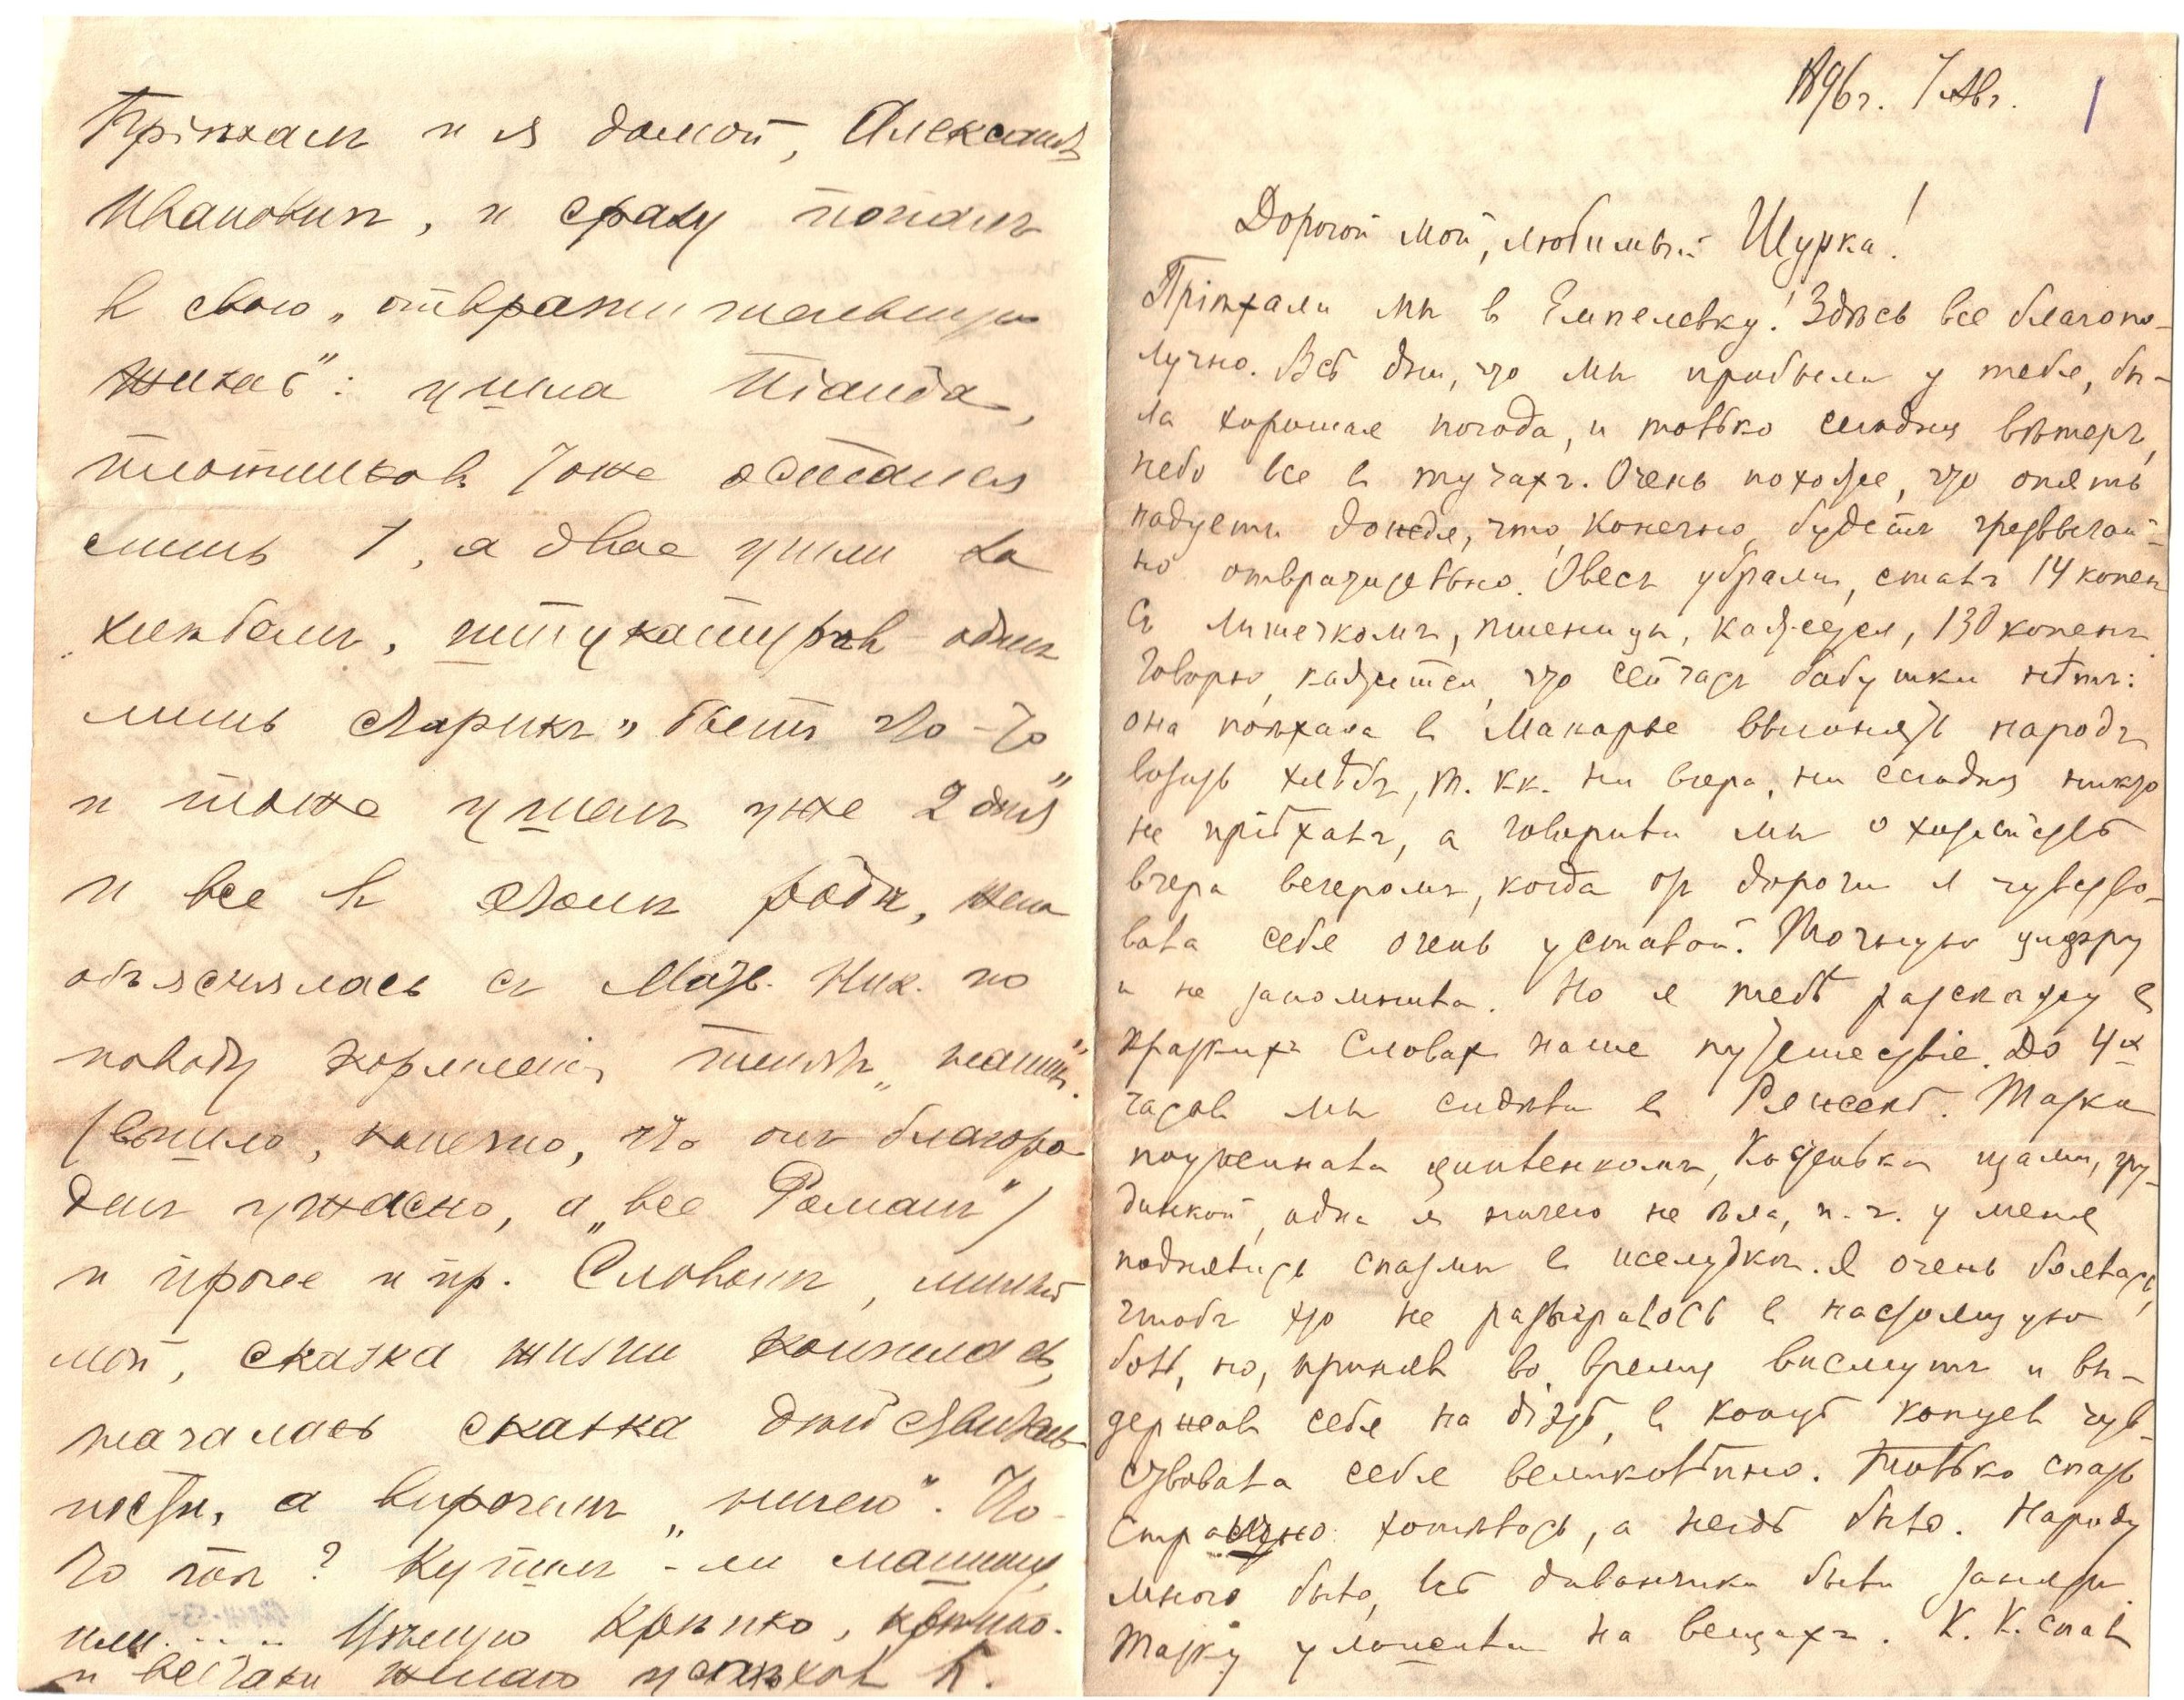 Пріѣхалъ и я домой, Александръ
Ивановичъ, и сразу попалъ
в свою „отвратительную
жизнь“: ушла Ида,
плотников тоже остался
лишь 1, а двое ушли за
хлѣбомъ, штукатуров один
лишь старикъ „бьетъ что-то“
и тоже ушелъ уже 2 дня
и все в этомъ родѣ,
объяснялась съ Мат. Ник. по
поводу кормленія телятъ
(вышло, конечно, что онъ благоро-
денъ ужасно, а „все Романъ“)
и прочее и пр. Словомъ, милый
мой, сказка жизни кончилась,
началась сказка дѣйствитель-
ности, а впрочемъ „ничего“. Что-
то ты? Купилъ-ли машину,
или.... Цѣлую крѣпко, крѣпко.
и всетаки желаю успѣхов К.
1896 г. 7 Авг. 1
Дорогой мой, любимый Шурка!
Пріѣхали мы в Емпелевку! Здѣсь все благопо-
лучно. Всѣ дни, что мы пробыли у тебя, бы-
ла хорошая погода, и только сегодня вѣтеръ,
небо все в тучахъ. Очень похоже, что опять
надуетъ дождя, что, конечно, будетъ чрезвычай-
но отвратительно. Овесъ убрали, сталъ 14 копен
съ лишечкомъ, пшеницы, кажется, 130 копенъ.
Говорю, кажется, что сейчасъ бабушки нѣтъ:
она поѣхала в Макарье выгонять народъ
возить хлѣбъ, т. кк. ни вчера, ни сегодня никто
не пріѣхалъ, а говорили мы о хозяйствѣ
вчера вечеромъ, когда от дороги я чувство-
вала себя очень усталой. Точную цифру
и не запомнила. Но я тебѣ разскажу в
краткихъ словах наше путешествіе. До 4х
часов мы сидѣли в Ряжскѣ. Таska
поужинала цыпленкомъ, Костенька щами, гру-
динкой, одна я ничего не ѣла, п. ч. у меня
поднялись спазмы в желудкѣ. Я очень боялась,
чтобъ это не разыгралось в настоящую
боль, но, принявъ во время висмутъ и вы-
держав себя на діэтѣ, в концѣ концев чув-
ствовала себя великолѣпно. Только спать
страшно хотѣлось, а негдѣ было. Народу
много было, всѣ диванчики были заняты.
уложили на вещахъ. К. К. спал